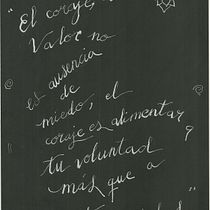 "El coraje,
Valor no
es ausencia
de
miedo, el
coraje es alimentar
tu voluntad
más que a